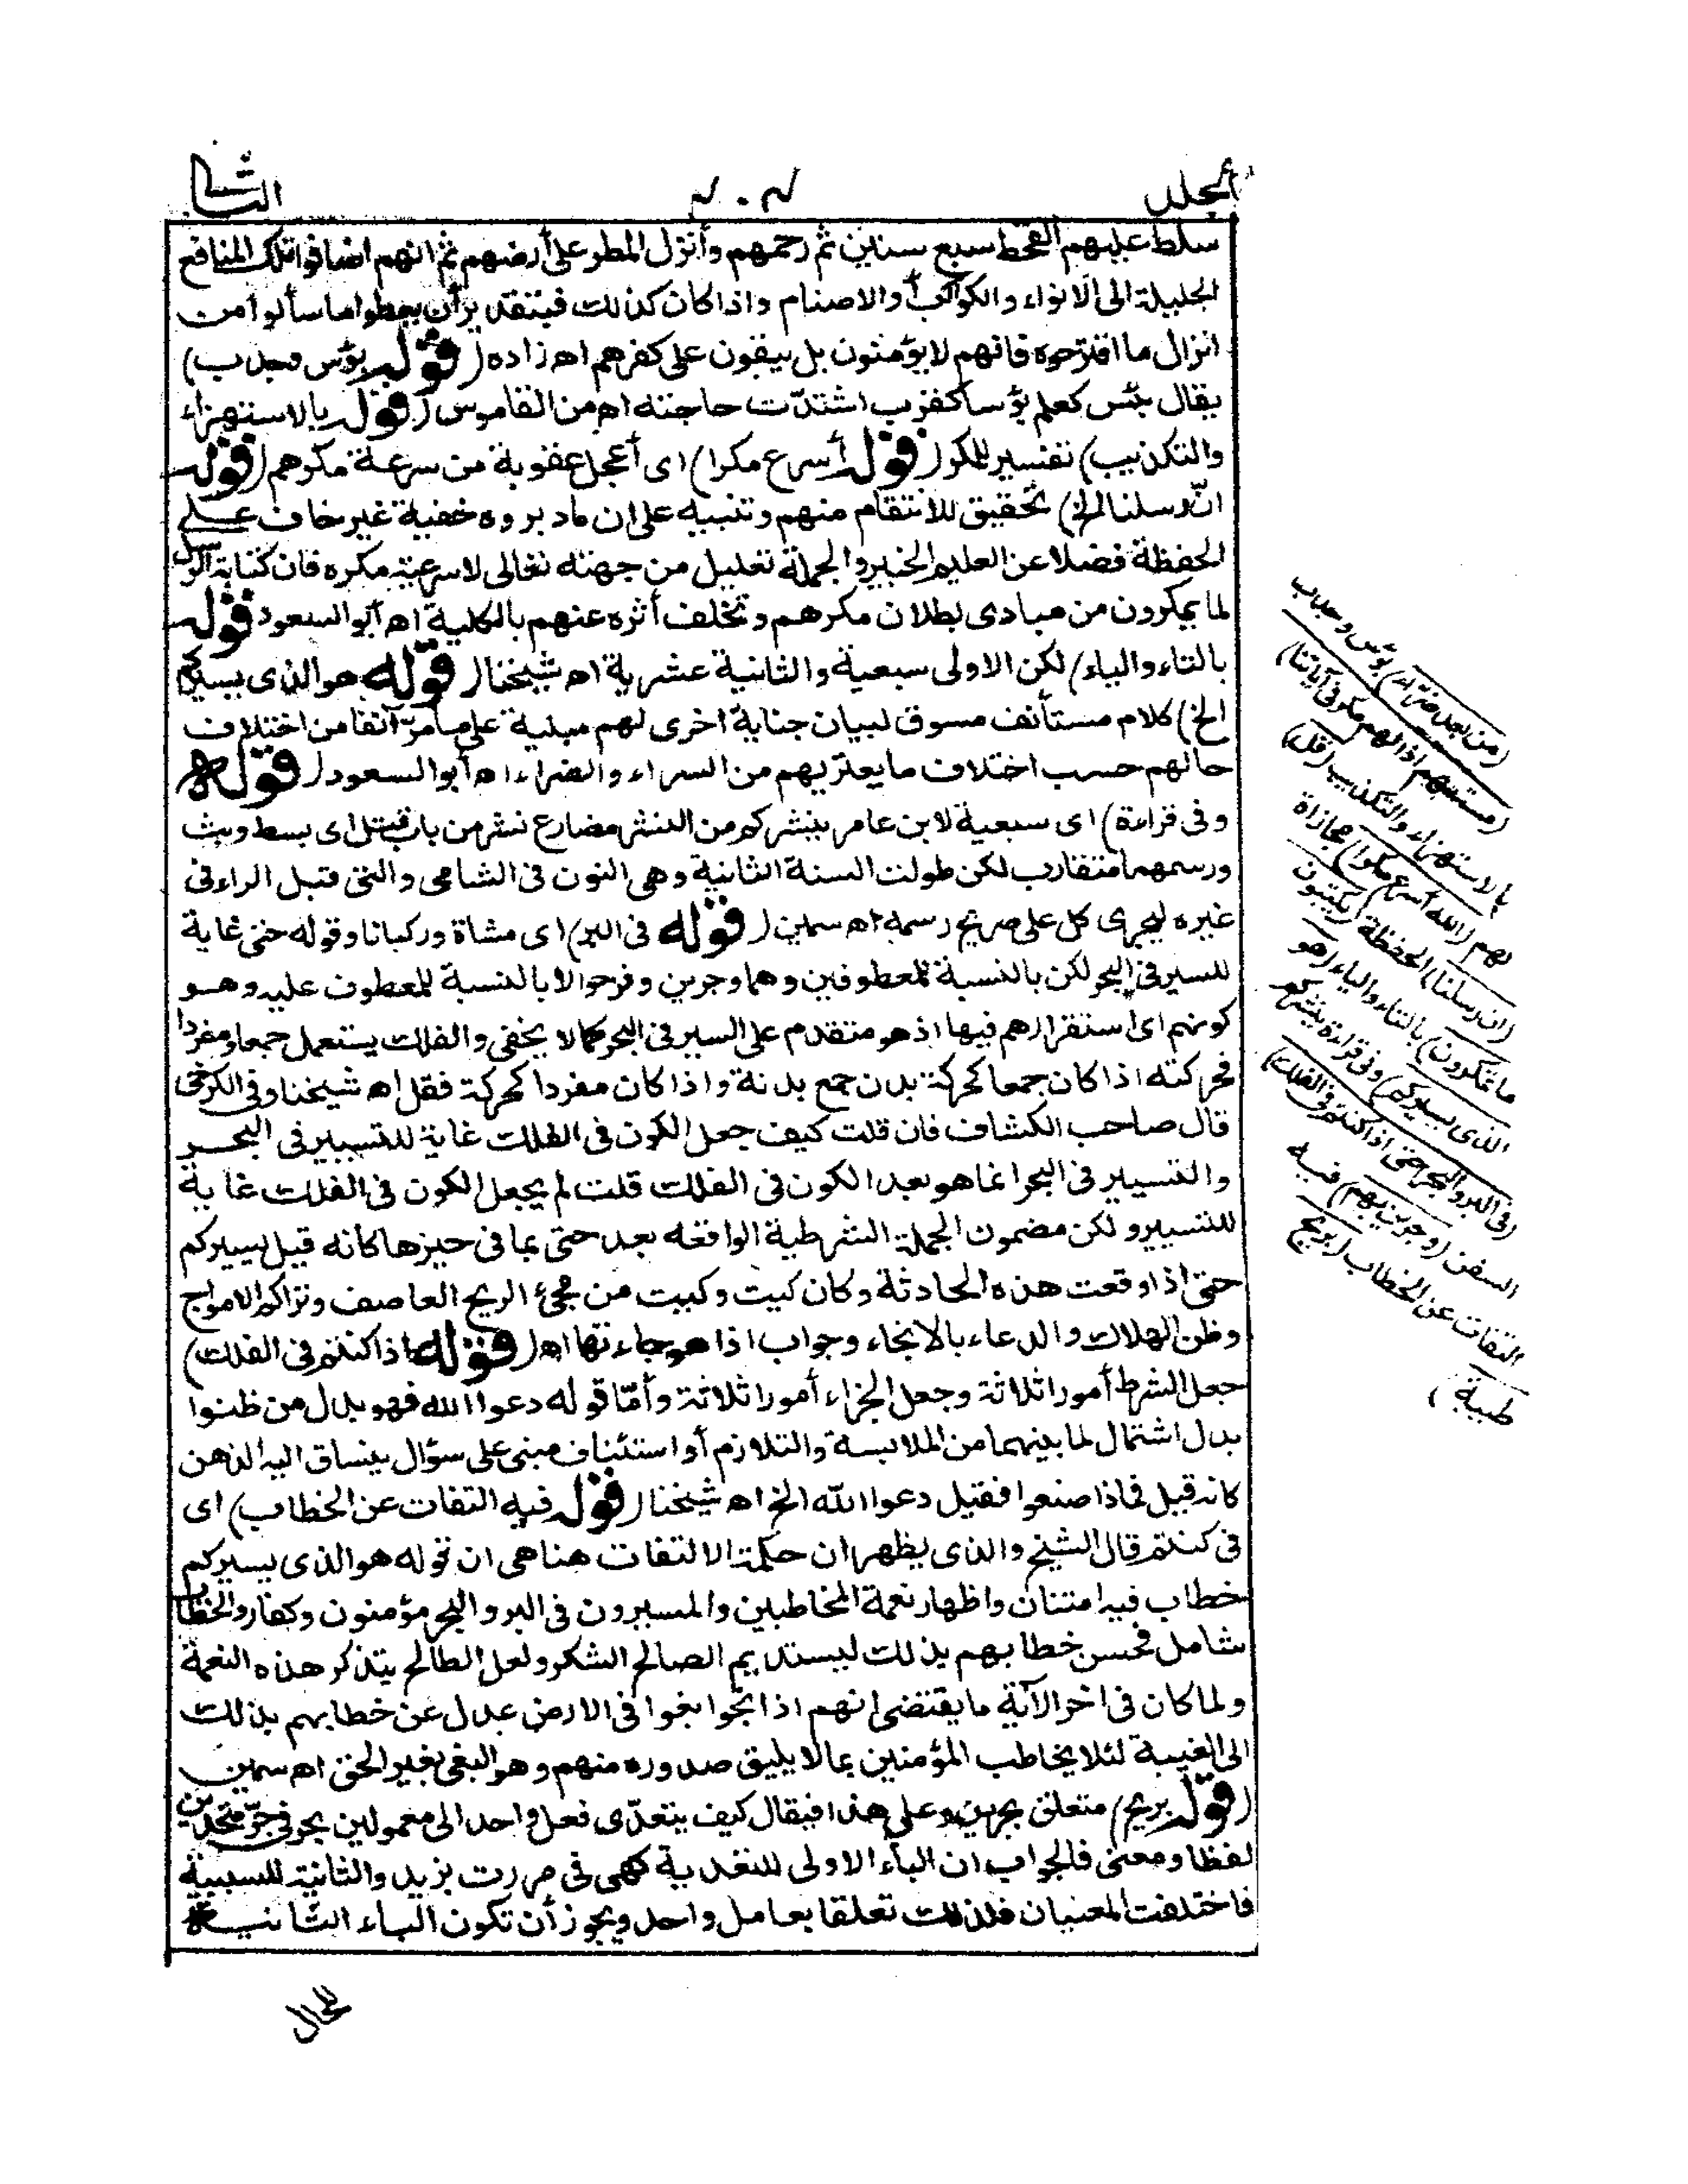 المجلد
٤٠٤
الثا
سلط عليهم القحط سبع سنين ثم رحمهم وأنزل المطر على أرضهم ثم انهم اضافوا تلك المنافع
الجليلة الى الانواء والكواكب أو الاصنام واذا كان كذلك فبتقدير أن يعطوا ما سألوا من
انزال ما اقترحوه فانهم لا يؤمنون بل يبقون على كفرهم اه زاده (قوله بؤس وجدب)
يقال بئس كعلم بؤسا كقرب اشتدّت حاجته اه من القاموس (قوله بالاستهزاء
والتكذيب) تفسير للمكر (قوله أسرع مكرا) اى أعجل عقوبة من سرعة مكرهم (قوله
انّ رسلنا الخ) تحقيق للانتقام منهم وتنبيه على ان ما دبروه خفية غير خاف على
الحفظة فضلا عن العليم الخبير والجملة تعليل من جهته تعالى لاسرعية مكره فان كتابة الرسل
لما يمكرون من مبادى بطلان مكرهم وتخلف أثره عنهم بالكلية اه أبو السعود قوله
بالتاء والياء) لكن الاولى سبعية والثانية عشرية اه شيخنا (قوله هو الذى يسيركم
الخ) كلام مستأنف مسوق لبيان جناية اخرى لهم مبنية على ما مرّ آنفا من اختلاف
حالهم حسب اختلاف ما يعتريهم من السراء والضراء اه أبو السعود (قوله
وفى قراءة) اى سبعية لابن عامر ينشركم من النشر مضارع نشر من باب قتل اى بسط وبث
ورسمهما متقارب لكن طولت السنة الثانية وهى النون فى الشامى والتى قبل الراء فى
غيره ليجرى كل على صريح رسمه اه سمين (قوله فى البر) اى مشاة وركبانا وقوله حتى غاية
للسير فى البحر لكن بالنسبة للمعطوفين وهما وجرين وفرحوا لا بالنسبة للمعطوف عليه وهو
كونهم اى استقرارهم فيها اذ هو متقدم على السير فى البحر كما لا يخفى والفلك يستعمل جمعا ومفردا
فحركته اذا كان جمعا كحركة بدن جمع بدنة واذا كان مفردا كحركة قفل اه شيخنا وفى الكرخى
قال صاحب الكشاف فان قلت كيف جعل الكون فى الفلك غاية للتسيير فى البحر
والتسيير فى البحر انما هو بعد الكون فى الفلك قلت لم يجعل الكون فى الفلك غاية
للتسيير ولكن مضمون الجملة الشرطية الواقعه بعد حتى بما فى حيزها كانه قيل يسيركم
حتى اذا وقعت هذه الحادثة وكان كيت وكيت من مجئ الريح العاصف وتراكم الامواج
وظن الهلاك والدعاء بالانجاء وجواب اذا هو جاءتها اه (قوله اذا كنتم فى الفلك)
جعل الشرط أمورا ثلاثة وجعل الجزاء أمورا ثلاثة وأمّا قوله دعوا الله فهو بدل من ظنوا
بدل اشتمال لما بينهما من الملابسة والتلازم أو استئناف مبنى على سؤال ينساق اليه الذهن
كانه قيل فماذا صنعوا فقيل دعوا الله الخ اه شيخنا (قوله فيه التفات عن الخطاب) اى
فى كنتم قال الشيخ والذى يظهر ان حكمة الالتفات هنا هى ان قوله هو الذى يسيركم
خطاب فيه امتنان واظهار نعمة المخاطبين والمسيرون فى البر والبحر مؤمنون وكفار والخطاب
شامل فحسن خطابهم بذلك ليستديم الصالح الشكر ولعل الطالح يتذكر هذه النعمة
ولما كان فى اخر الآية ما يقتضى انهم اذا نجوا بغوا فى الارض عدل عن خطابهم بذلك
الى الغيبة لئلا يخاطب المؤمنين بما لا يليق صدوره منهم وهو البغى بغير الحق اه سمين
(قوله بريح) متعلق بجرين وعلى هذا فيقال كيف يتعدّى فعل واحد الى معمولين بحرفى جرّ متحدين
لفظا ومعنى فالجواب ان الباء الاولى للتعدية كهى فى مررت بزيد والثانية للسببية
فاختلفت المعنيان فلذلك تعلقا بعامل واحد ويجوز أن تكون الباء الثانية
للحال
(من بعد ضراء) بؤس وجدب
(مستهم اذا لهم مكر فى آياتنا)
بالاستهزاء والتكذيب (قل)
لهم (الله أسرع مكرا) مجازاة
(ان رسلنا) الحفظة (يكتبون
ما تمكرون) بالتاء والياء (هو
الذى يسيركم) وفى قراءة ينشركم
(فى البر والبحر حتى اذا كنتم فى الفلك)
السفن (وجرين بهم) فيه
التفات عن الخطاب (بريح
طيبة)